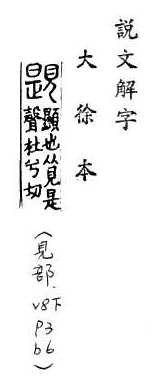 說文解字
大徐本
顯也从見是
聲杜兮切
（見部. v8下 P3 b6）